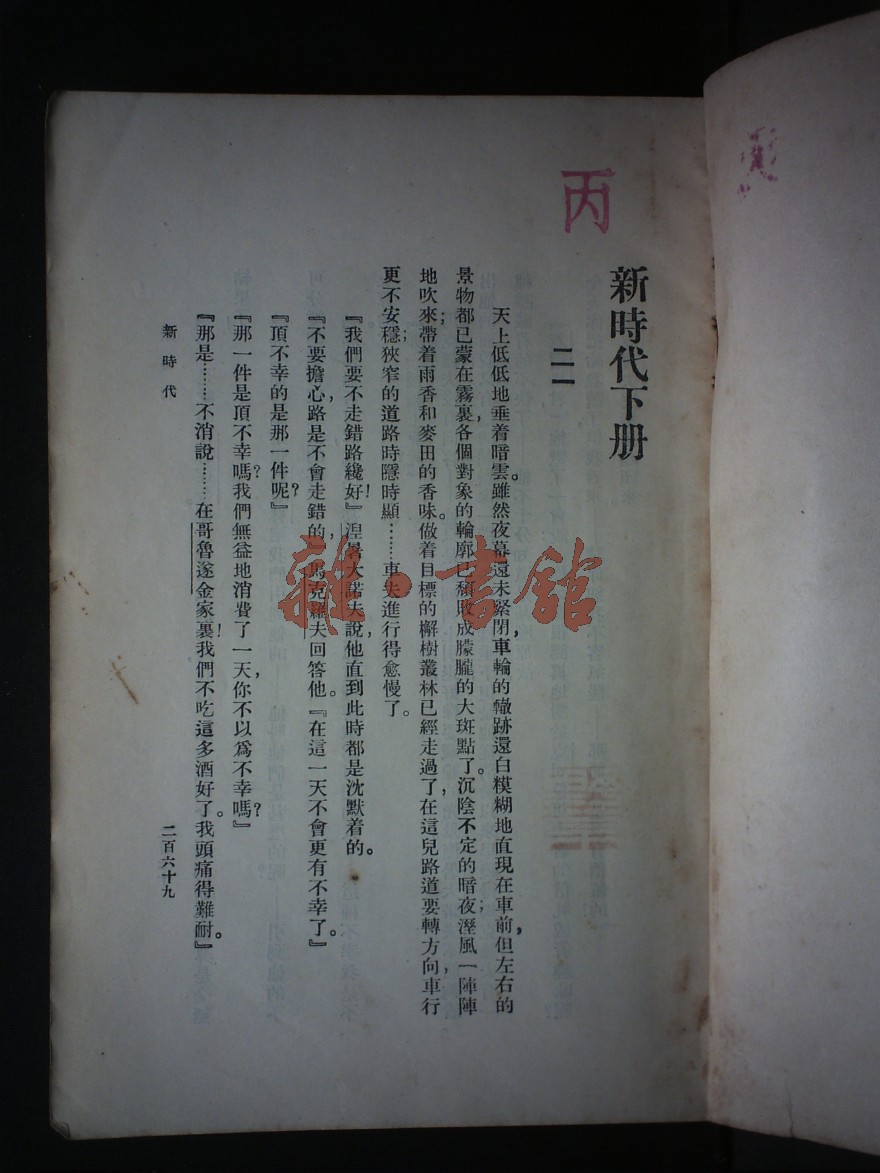 丙
新時代下册
二一
天上低低地垂着暗雲。雖然夜幕還未緊閉，車輪的轍跡還白糢糊地直現在車前，但左右的
景物都已蒙在霧裏，各個對象的輪廓已頹敗成朦朧的大斑點了。沉陰不定的暗夜；溼風一陣陣
地吹來；帶着雨香和麥田的香味。做着目標的檞樹叢林已經走過了，在這兒路道要轉方向，車行
更不安穩；狹窄的道路時隱時顯……車夫進行得愈慢了。
『我們要不走錯路纔好！』涅暑大諾夫說，他直到此時都是沈默着的。
『不要擔心，路是不會走錯的，』馬克羅夫回答他。『在這一天不會更有不幸了。』
『頂不幸的是那一件呢？』
『那一件是頂不幸嗎？我們無益地消費了一天，你不以爲不幸嗎？』
『那是……不消說……在哥魯遂金家裏！我們不吃這多酒好了。我頭痛得難耐。』
新時代
二百六十九
雜·書館